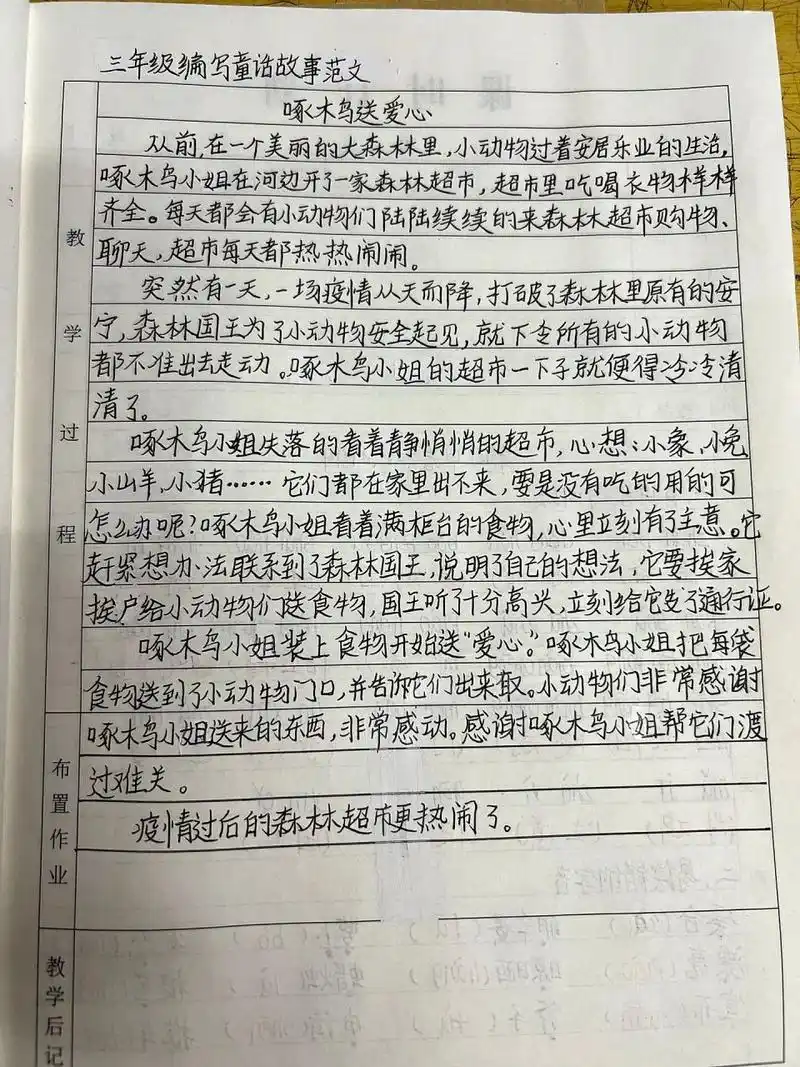 三年级编写童话故事范文
啄木鸟送爱心
从前,在一个美丽的大森林里,小动物过着安居乐业的生活,
啄木鸟小姐在河边开了一家森林超市,超市里吃喝衣物样样
齐全。每天都会有小动物们陆陆续续的来森林超市购物、
聊天,超市每天都热热闹闹。
突然有一天,一场疫情从天而降,打破了森林里原有的安
宁,森林国王为了小动物安全起见,就下令所有的小动物
都不准出去走动。啄木鸟小姐的超市一下子就便得冷冷清
清了。
啄木鸟小姐失落的看着静悄悄的超市,心想:小象,小兔
小山羊,小猪……它们都在家里出不来,要是没有吃的用的可
怎么办呢?啄木鸟小姐看着满柜台的食物,心里立刻有了主意。它
赶紧想办法联系到了森林国王,说明了自己的想法,它要挨家
挨户给小动物们送食物,国王听了十分高兴,立刻给它发了通行证。
啄木鸟小姐装上食物开始送“爱心”。啄木鸟小姐把每袋
食物送到了小动物门口,并告诉它们出来取。小动物们非常感谢
啄木鸟小姐送来的东西,非常感动。感谢啄木鸟小姐帮它们渡
过难关。
疫情过后的森林超市更热闹了。
教学过程
布置作业
教学后记